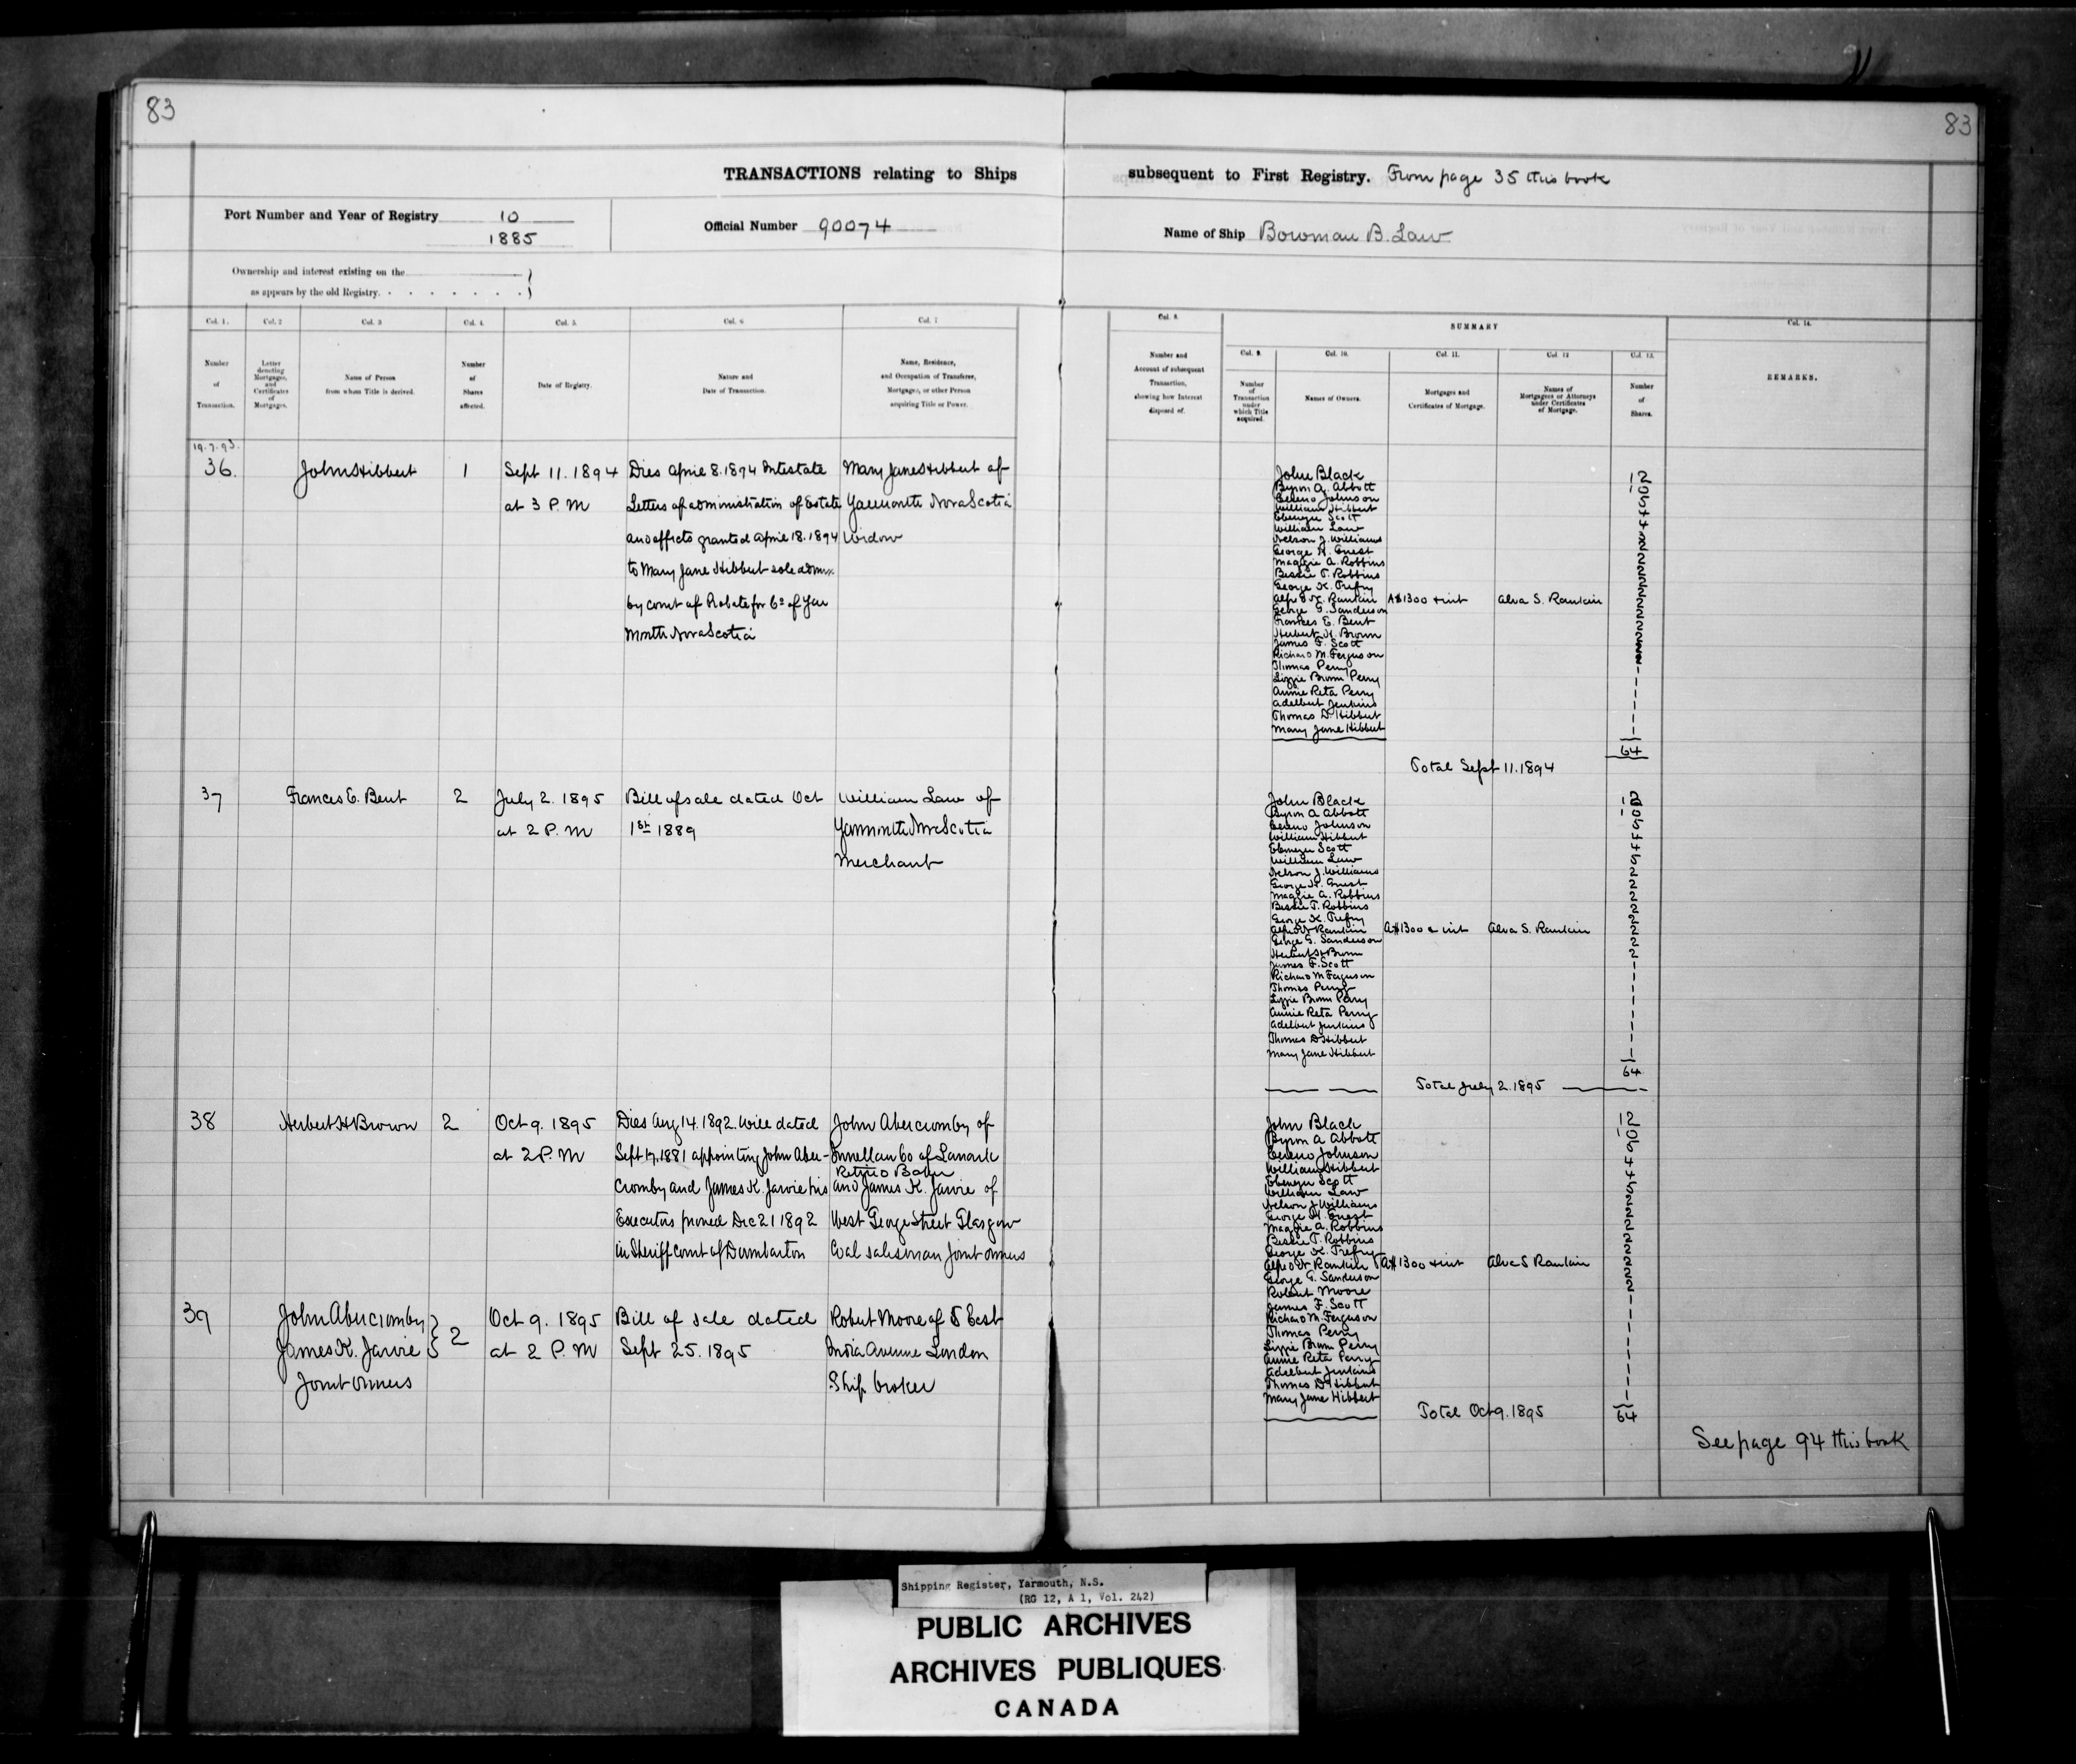 83
83
TRANSACTIONS relating to Ships subsequent to First Registry. From page 35 this book
Port Number and Year of Registry 10
1885
Official Number 90074
Name of Ship Bowman B. Law
Ownership and interest existing on the
as appears by the old Registry.
Col. 1. Col. 2 Col. 3 Col. 4. Col. 5. Col. 6 Col. 7
Number of Transaction.
Letter denoting Mortgages, and Certificates of Mortgages.
Name of Person from whom Title is derived.
Number of Shares affected.
Date of Registry.
Nature and Date of Transaction.
Name, Residence, and Occupation of Transferee, Mortgagee, or other Person acquiring Title or Power.
Col. 8.
Number and Account of subsequent Transaction, showing how Interest disposed of.
SUMMARY
Col. 9. Col. 10. Col. 11. Col. 12 Col. 13.
Number of Transaction under which Title acquired.
Names of Owners.
Mortgages and Certificates of Mortgage.
Names of Mortgagees or Attorneys under Certificates of Mortgage.
Number of Shares.
Col. 14.
REMARKS.
19.7.93.
36. John Hibbert 1 Sept 11. 1894 Dies April 8. 1894 Intestate Mary Jane Hibbert of
at 3 P.M Letters of administration of Estate Yarmouth Nova Scotia
and effects granted April 18. 1894 Widow
to Mary Jane Hibbert sole admx
by court of Probate for Co of Yar
mouth Nova Scotia
John Black
Byron A. Abbott
Cereno Johnson
William Hibbert
Ebenezer Scott
William Law
Nelson J. Williams
George H. Guest
Maggie A. Robbins
Bessie T. Robbins
George K. Trefry
Alfred W. Rankin A$1300 + int Alva S. Rankin
George G. Sanderson
Frances E. Bent
Herbert H. Brown
James F. Scott
Richard M. Ferguson
Thomas Perry
Lizzie Brown Perry
Annie Reta Perry
Adelbert Jenkins
Thomas D. Hibbert
Mary Jane Hibbert
64
Total Sept 11. 1894
37 Frances E. Bent 2 July 2. 1895 Bill of sale dated Oct William Law of
at 2 P.M 1st 1889 Yarmouth Nova Scotia
Merchant
John Black
Byron A Abbott
Cereno Johnson
William Hibbert
Ebenezer Scott
William Law
Nelson J. Williams
George H. Guest
Maggie A. Robbins
Bessie T. Robbins
George K. Trefry
Alfred W Rankin A$1300 & int Alva S. Rankin
George G. Sanderson
Herbert H Brown
James F. Scott
Richard M Ferguson
Thomas Perry
Lizzie Brown Perry
Annie Reta Perry
Adelbert Jenkins
Thomas D Hibbert
Mary Jane Hibbert
64
Total July 2. 1895
38 Herbert H Brown 2 Oct 9. 1895 Dies Aug 14. 1892. Will dated John Abercromby of
at 2 P.M Sept 17. 1881 appointing John Aber- Co of Lanark
Retired Baker
cromby and James K. Jarvie his and James K. Jarvie of
Executors proved Dec 21 1892 West George Street Glasgow
in Sheriff court of Dumbarton Coal salesman Joint owners
39 John Abercromby 2 Oct 9. 1895 Bill of sale dated Robert Moore of 5 East
James K. Jarvie at 2 P.M Sept 25. 1895 India Avenue London
Joint owners Ship broker
John Black
Byron A Abbott
Cereno Johnson
William Hibbert
Ebenezer Scott
William Law
Nelson J Williams
George H. Guest
Maggie A. Robbins
Bessie T. Robbins
George K. Trefry
Alfred W Rankin A$1300 + int Alva S Rankin
George G. Sanderson
Robert Moore
James F. Scott
Richard M. Ferguson
Thomas Perry
Lizzie Brown Perry
Annie Reta Perry
Adelbert Jenkins
Thomas D Hibbert
Mary Jane Hibbert
Total Oct 9. 1895 64
See page 94 this book
Shipping Register, Yarmouth, N.S.
(RG 12, A 1, Vol. 242)
PUBLIC ARCHIVES
ARCHIVES PUBLIQUES
CANADA